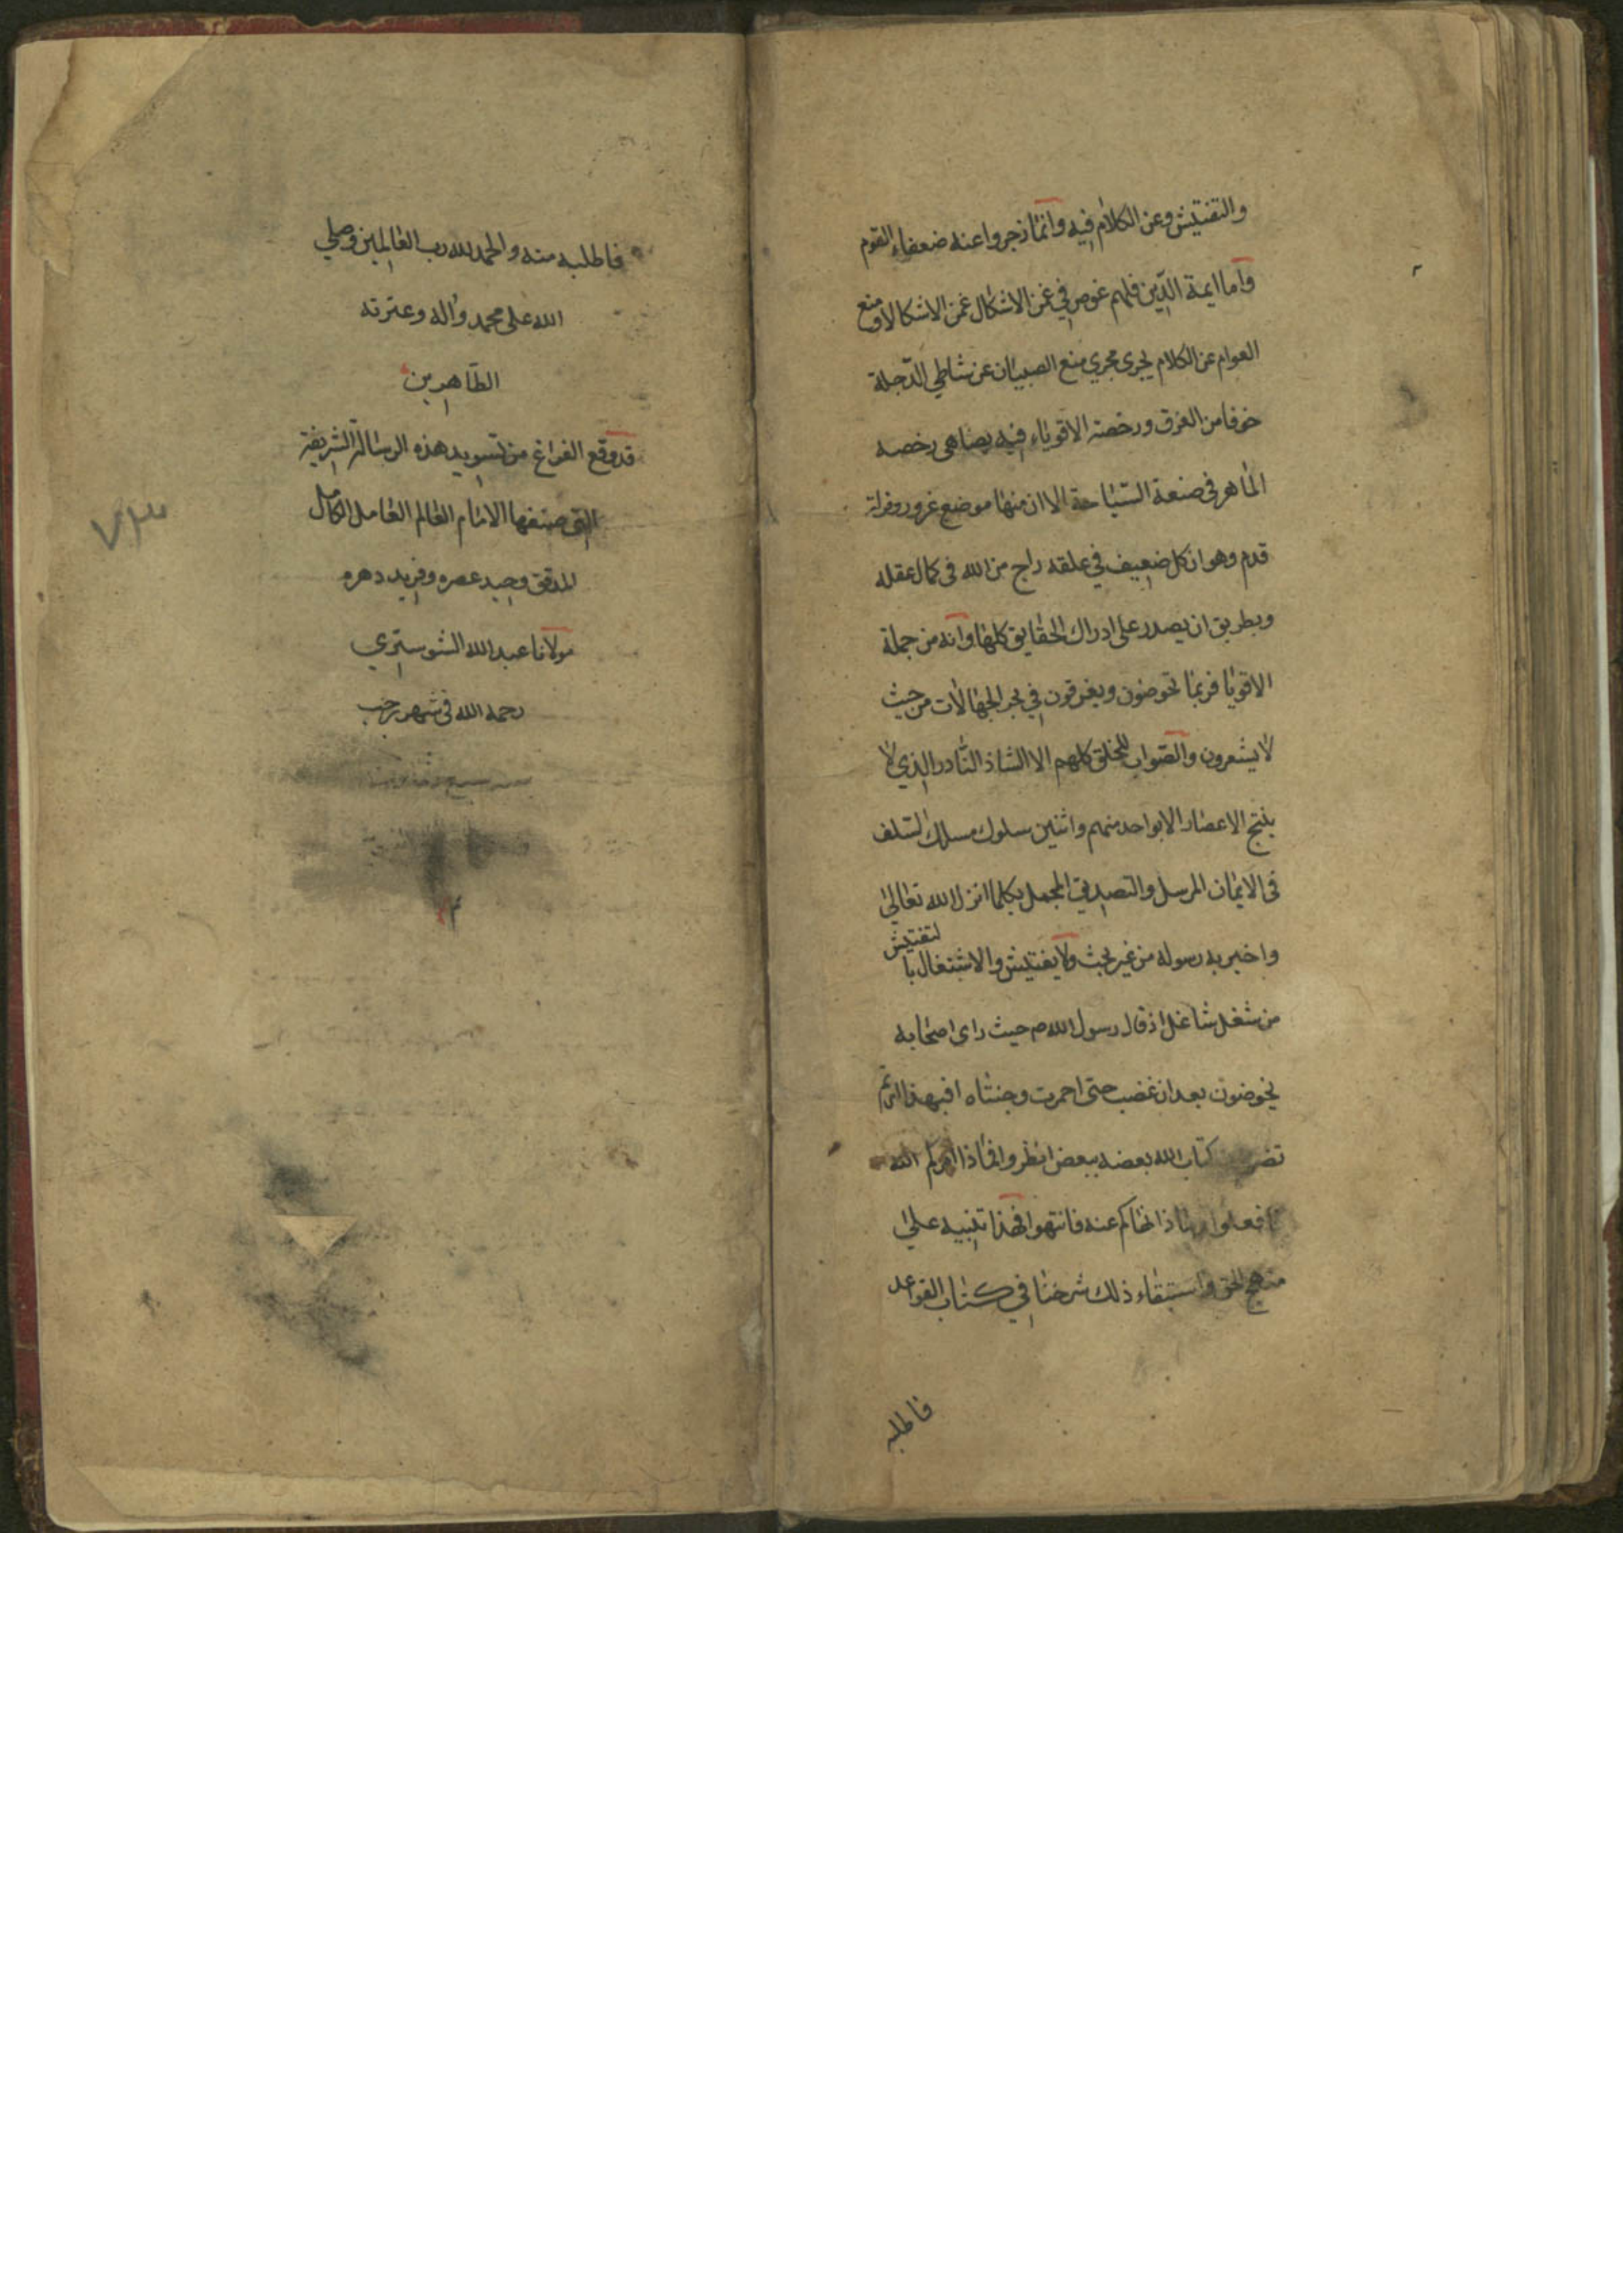 والتفتيش وعن الكلام فيه وانما زجروا عنه ضعفاء القوم
واما ايمة الدّين فلهم غوص في غمن الاشكال غمن الاشكالاو منع
العوام عن الكلام يجرى مجري منع الصبيان عن شاطي الدّجلة
خوفا من الغرق ورخصة الاقوياء فيه يضاهى رخصه
الماهر فى صنعة السّباحة الا ان منها موضع غرور وفرلة
قدم وهو ان كل ضعيف في علقه راج من الله فى كمال عقله
وبطريق ان يصدر على ادراك الحقايق كلها وانه من جملة
الاقويا فربما تخوضون ويغرقون في بحر الجهالات من حيث
لا يشعرون والصّواب للخلق كلهم الا الشاذ النّادر الذي لا
ينتج الاعصار الا بواحد منهم واثنين سلوك مسلك السّلف
فى الايمان المرسل والتصديق المجمل بكلما انزل الله تعالى
واخبر به رسوله من غير بحث ولا يفتيش والاشتغال با لتفتيش
من شغل شاغل اذ قال رسول الله ص حيث راى اصحابه
يخوضون بعد ان غضب حتى احمرت وجنتاه افبهذا امرتم
كتاب الله بعضه ببعض انظروا فماذا امركم الله
فافعلوا وماذا نهاكم عنه فانتهوا فهذا تنبيه على
منهج الحق واستبقاء ذلك شرحنا في كتاب القواعد
فاطلبه
فاطلبه منه والحمد لله رب العالمين وصلي
الله على محمد واله وعترته
الطّاهرين
قد وقع الفراغ من تسويد هذه الرسالة الشريفة
التى صنفها الامام العالم العامل الكامل
المدقق وحيد عصره وفريد دهره
مولانا عبد الله الشوستري
رحمه الله فى شهر رجب
٧٣